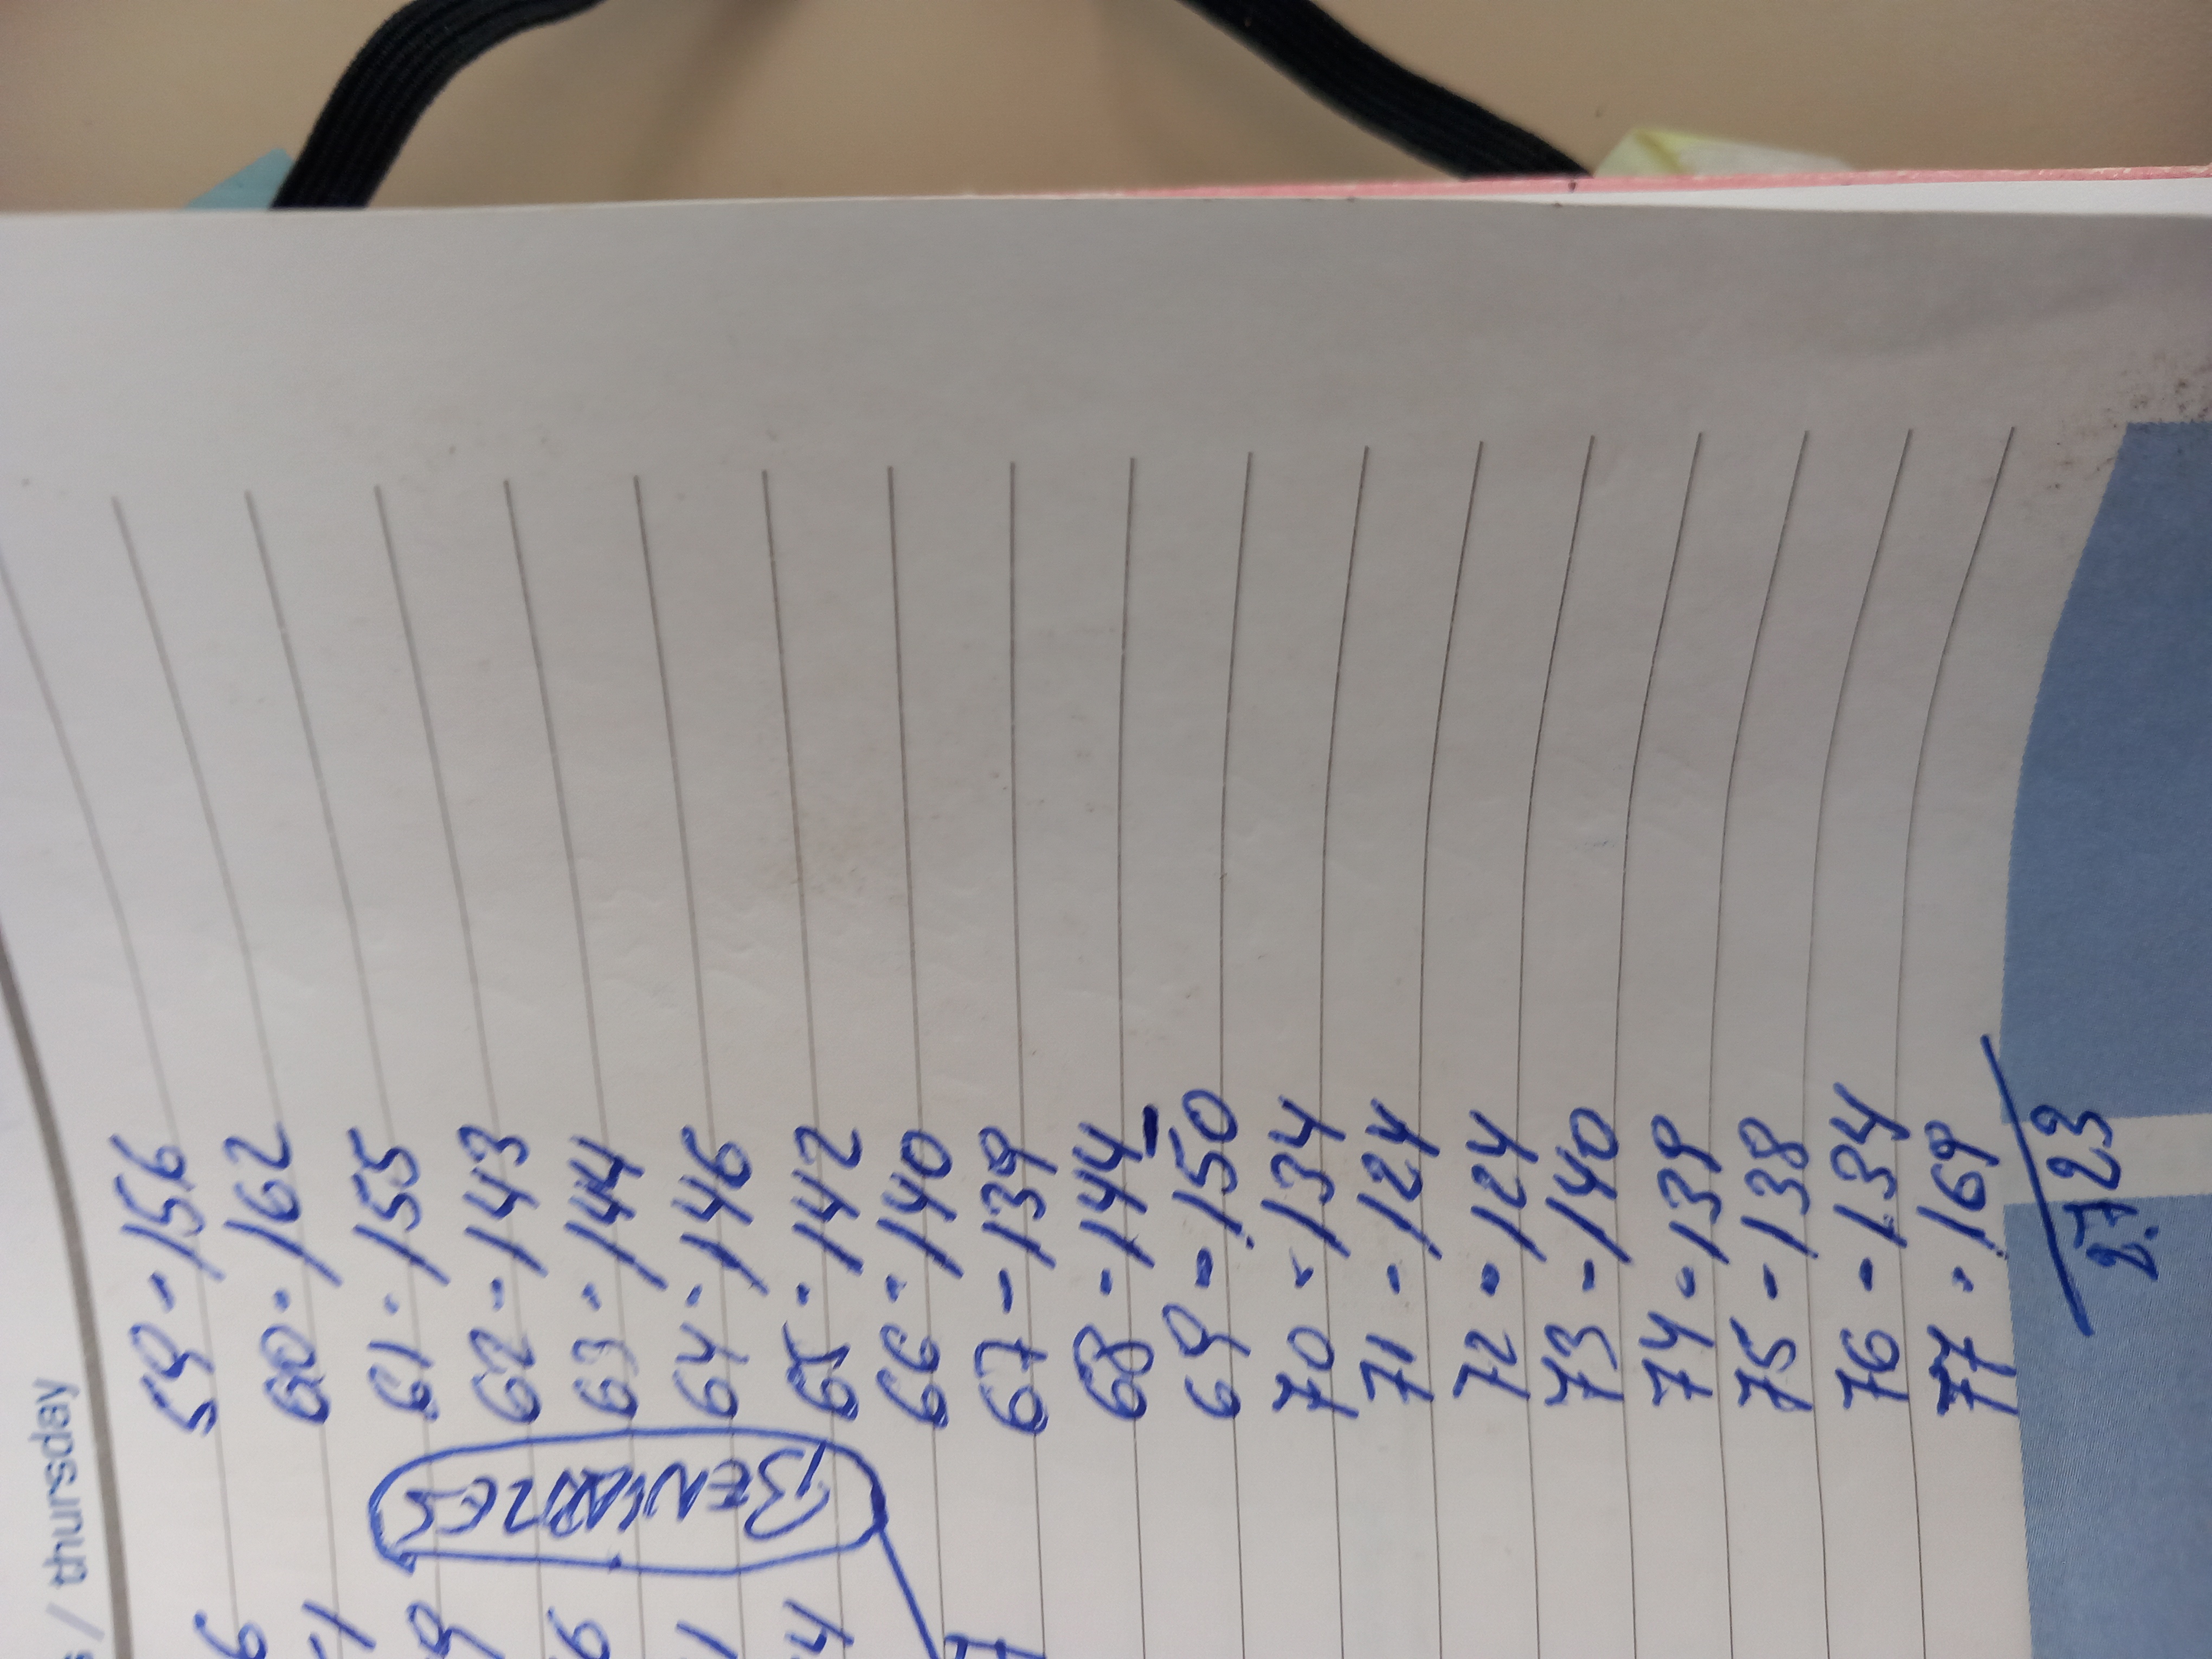 / thursday
59 - 156
60 - 162
61 - 155
62 - 143
63 - 144
64 - 146
65 - 142
66 - 140
67 - 139
68 - 144
69 - 150
70 - 134
71 - 124
72 - 124
73 - 140
74 - 139
75 - 138
76 - 134
77 - 169
2.723